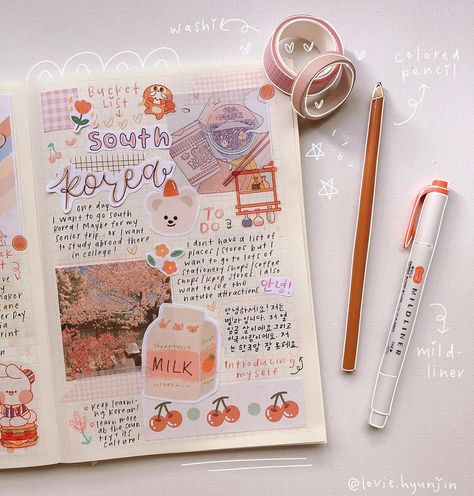 washi
colored
pencil
Bucket
List
South
Korea
one day...
I want to go south
korea! Maybe for my
senior trip... or I want
to study abroad there
in college!
TO
DO
I don't have a list of
places/stores but I
want to go to lots of
stationery shops/coffee
shops/kpop stores. I also
want to see the
nature attractions.
안녕!
안녕하세요! 저는
입니다. 저
살이에요 그리고
사람이에요. 저
는 한국말 잘 못해요.
Introducing
myself
strawberry
MILK
keep learn-
ing korean!
learn more
ab the coun-
try + its
culture!
MILDLINER
mild-
liner
@lovie.hyunjin